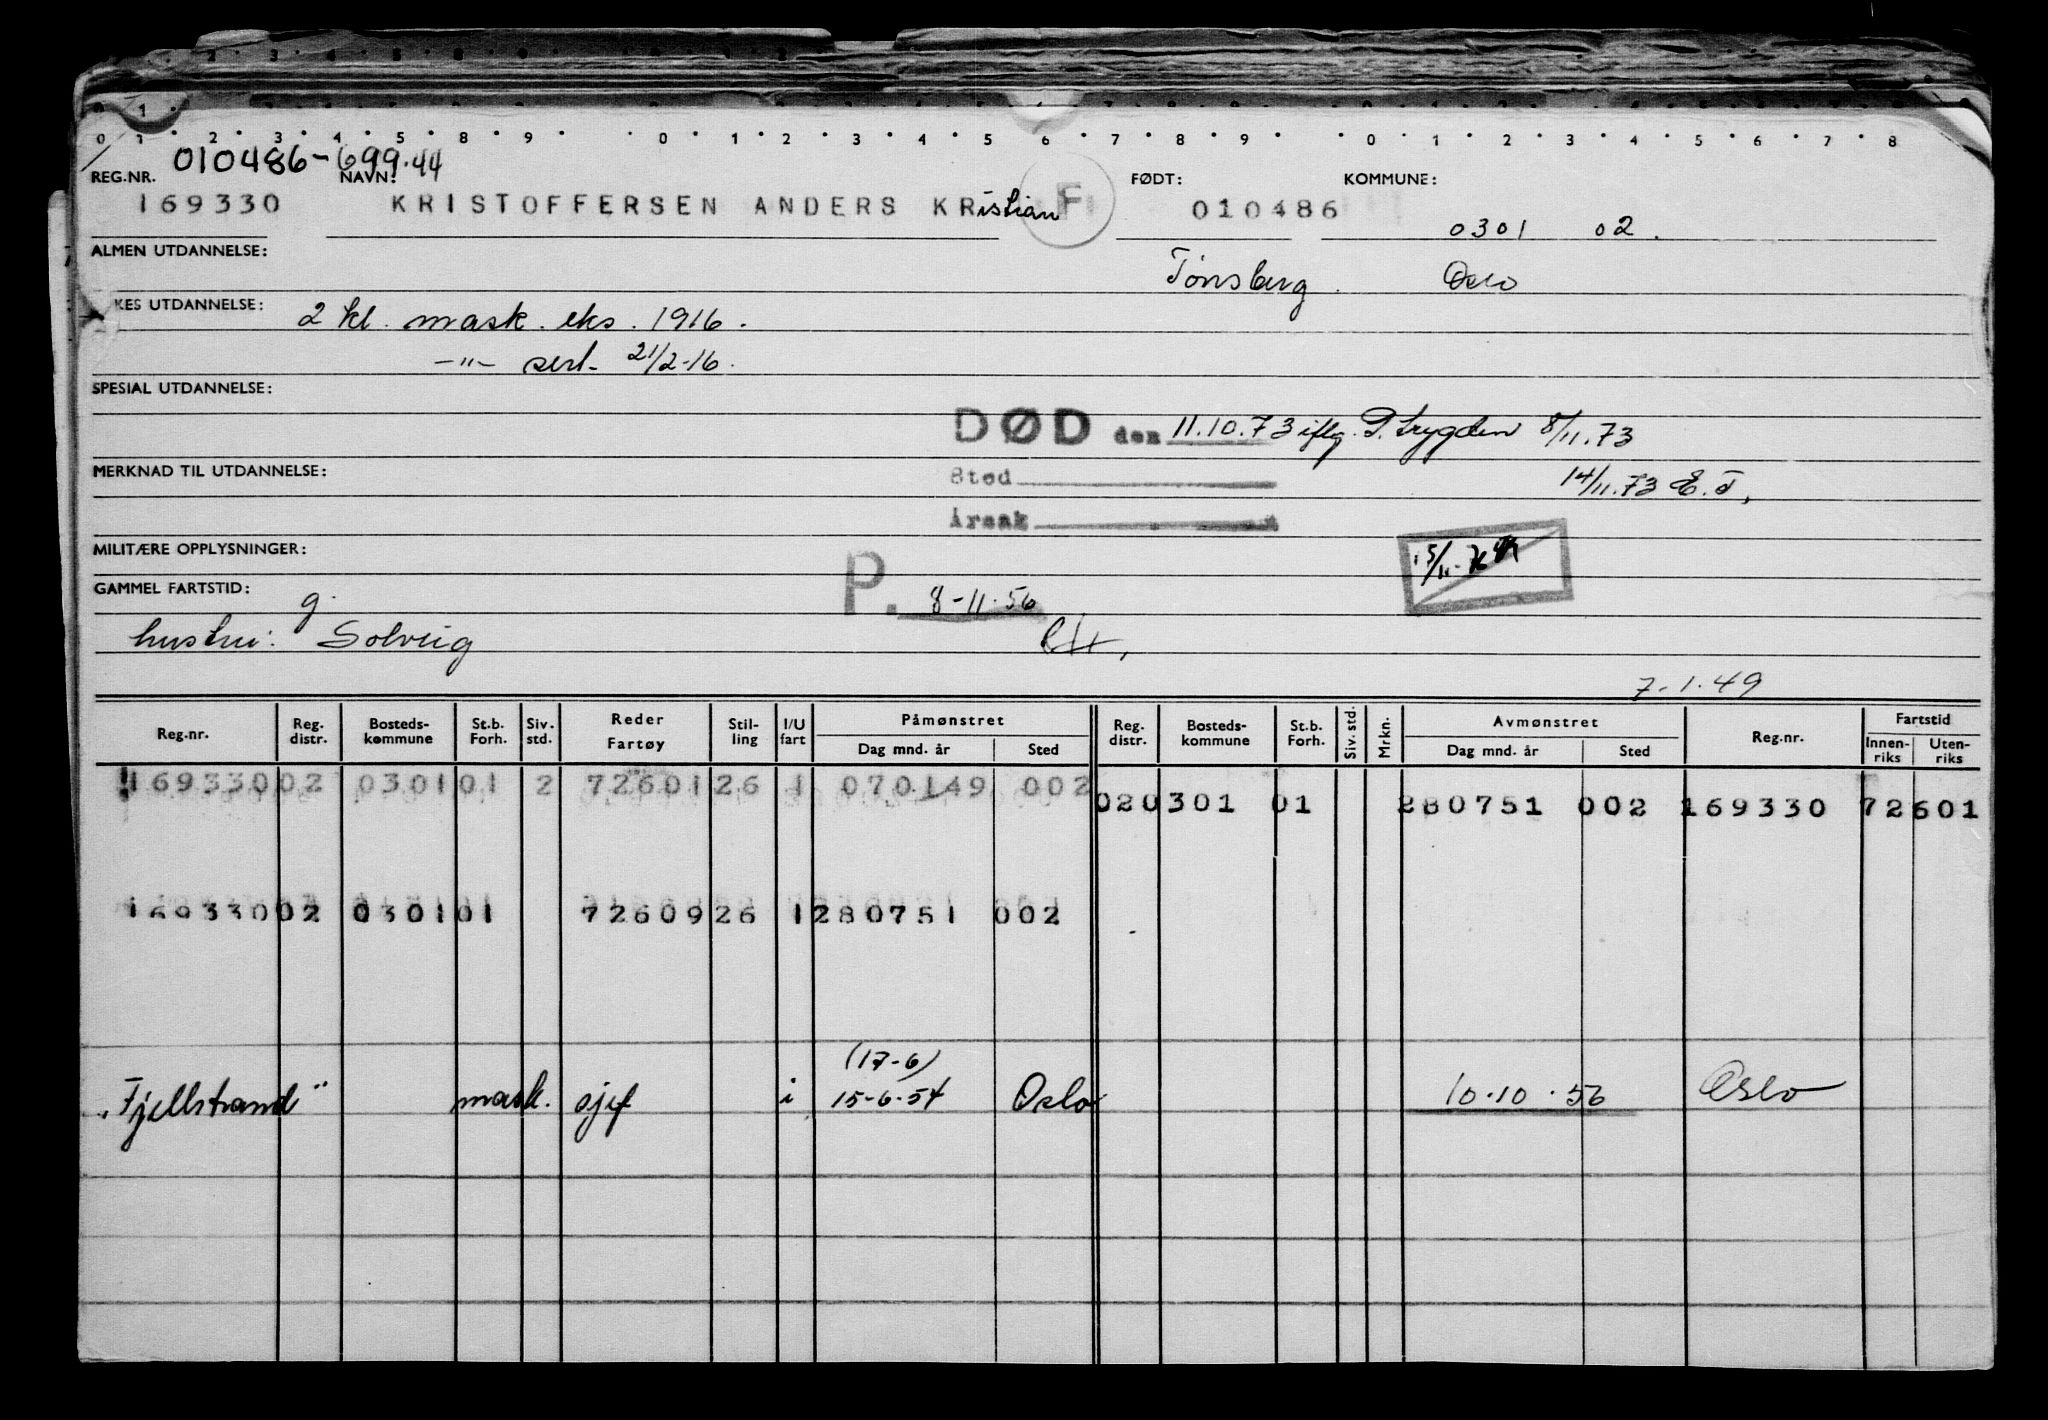 0 1 2 3 4 5 8 9 0 1 2 3 4 5 6 7 8 9 0 1 2 3 4 5 6 7 8
010486-699.44
REG.NR. NAVN: FØDT: KOMMUNE:
169330 KRISTOFFERSEN ANDERS KRistian F 010486 0301 02.
ALMEN UTDANNELSE: Tønsberg. Oslo
KES UTDANNELSE: 2 kl. mask. eks. 1916.
-"- sert. 21/2-16.
SPESIAL UTDANNELSE:
DØD den 11.10.73 iflg. P. trygden 8/11.73
MERKNAD TIL UTDANNELSE: Sted 14/11.73 E.T.
Årsak
MILITÆRE OPPLYSNINGER: 15/11-
GAMMEL FARTSTID: g. P. 8-11.56
hustru: Solveig
7-1.49
Reg.nr. Reg. distr. Bosteds-kommune St.b. Forh. Siv. std. Reder Fartøy Stil-ling I/U fart Påmønstret Dag mnd. år Sted Reg. distr. Bosteds-kommune St.b. Forh. Siv. std. Mrkn. Avmønstret Dag mnd. år Sted Reg.nr. Fartstid Innen-riks Uten-riks
169330 02 0301 01 2 72601 26 1 070149 002
020301 01 280751 002 169330 72601
169330 02 0301 01 72609 26 1 280751 002
(17-6)
"Fjellstrand" mask. sjef i 15-6-54 Oslo 10.10.56 Oslo